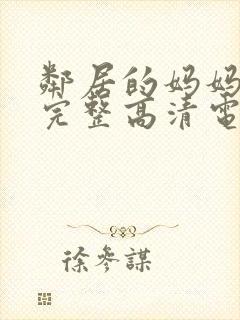 鄰居的妈妈
完整高清電
徐參謀